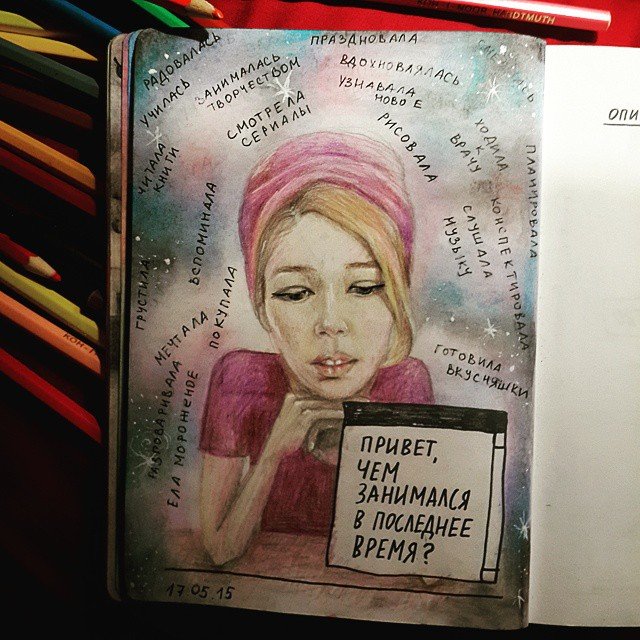 РАДОВАЛАСЬ
УЧИЛАСЬ
ЗАНИМАЛАСЬ
ТВОРЧЕСТВОМ
ПРАЗДНОВАЛА
ВДОХНОВЛЯЛАСЬ
УЗНАВАЛА
НОВОЕ
СМОТРЕЛА
СЕРИАЛЫ
РИСОВАЛА
ХОДИЛА
К
ВРАЧУ
ПЛАНИРОВАЛА
КОНСПЕКТИРОВАЛА
СЛУШАЛА
МУЗЫКУ
ЧИТАЛА
КНИГИ
ВСПОМИНАЛА
ГРУСТИЛА
МЕЧТАЛА
ПОКУПАЛА
ЕЛА МОРОЖЕНОЕ
ГОТОВИЛА
ВКУСНЯШКИ
ПРИВЕТ,
ЧЕМ
ЗАНИМАЛСЯ
В ПОСЛЕДНЕЕ
ВРЕМЯ?
17.05.15
ОПИ